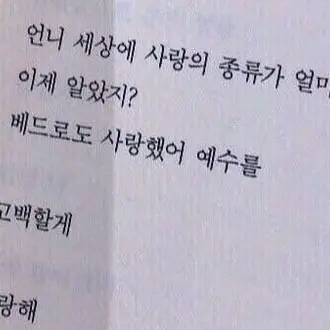 언니 세상에 사랑의 종류가
이제 알았지?
베드로도 사랑했어 예수를
고백할게
랑해